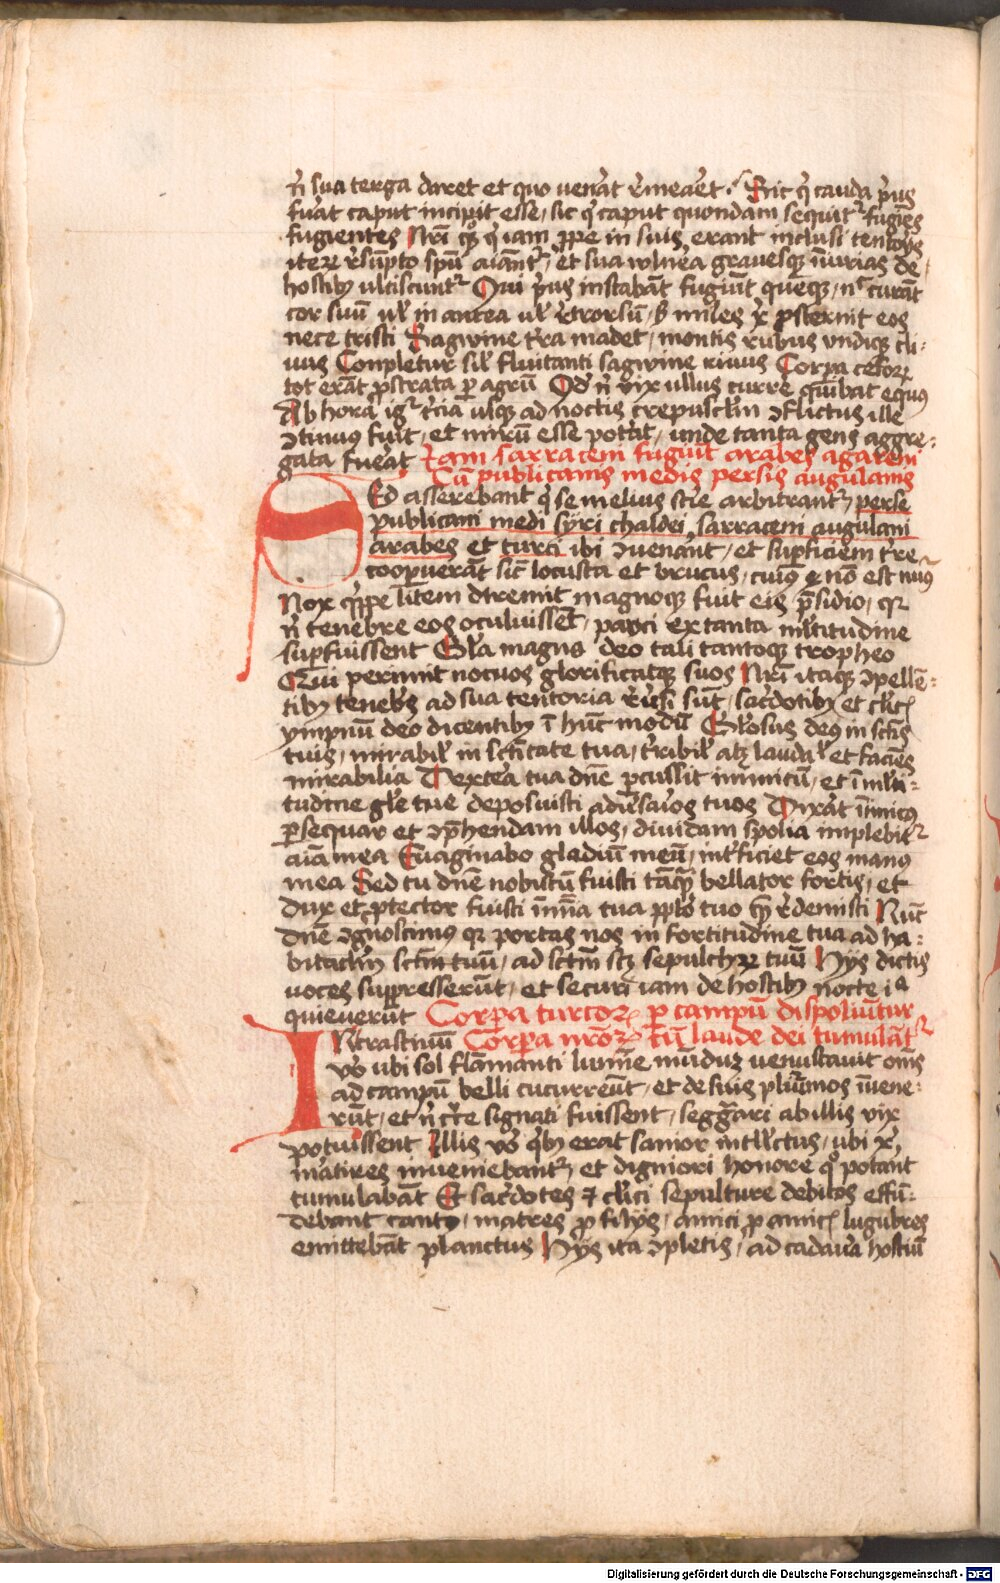 n̄ sua terga daret et quo ven̄at r̄meaēt. Sic q̄ cauda p̄us
fūat caput incipit esse, sic q̄ caput quondam sequit᷑ fugiēs
fugientes Nr̄i q̄ꝫ q̄ iam ꝓpe in suis erant inclusi tentor̄s
iteꝝ r̄sūpto spū aīant᷑, et sua wlnera grauesqꝫ iniurias de
hostibꝫ ulciscunt᷑ Qui p̄us instabāt fugiūt quēqꝫ, n̄ curāt
cor suū ul̄ in antea ul̄ r̄trorsū, ꝫ miles xp̄i ꝓsternit eos
nece tristi Sagwine t̄ra madet, montis rubus vndiqꝫ cli-
uus Conpletur sil̄ fluitanti sagwine riuus Corpa cesoꝝ
tot erāt ꝓstrata ꝑ agrū Qd̄ n̄ vix ullus currē quibat equꝰ
Ab hora ig᷑ t̄cia usqꝫ ad noctis crepuscl̄m ↄflictus ille
ↄtinuus fuit, et mirū esse potāt, unde tanta gens aggre-
gata fuēat Nam sarraceni fugiūt arabes agareni
Cū publicanis medis persis augulanis
Sed asserebant q̄ se melius scīe arbitrant᷑, perse
publicani medi syri chaldei, sarraceni augulani
arabes et turci ibi ↄuenāt, et suꝑficiem t̄re
cooꝑuerāt sic̄ locusta et brucus, cuiꝰ nō est nūꝰ
Nox q̄ippe lītem dtremit magnoqꝫ fuit eis p̄sidio, qꝛ
n̄ tenebre eos oculuissēt, pauci ex tanta ml̄titudine
suꝑfuissent Gl̄a magna deo tali tantoqꝫ tropheo
Qui perimit nocuos glorificatqꝫ suos Nr̄i itaqꝫ ↄpellē-
tibꝫ tenebr̄s ad sua tentoria r̄ūsi sūt, sac̄dotibꝫ et cl̄ic̄
ympnū deo dicentibꝫ ī hūc modū Gl̄osus deꝰ in scīs
tuis, mirabil̄ in sctītate tua, t̄ribil̄ atꝫ laudal̄ et faciēs
mirabilia Dextea tua dn̄e ꝑcussit inimicū, et ī ml̄ti-
tudine gl̄e tue deposuisti adūsarios tuos Dixāt inimicꝰ
ꝑsequar et ↄp̄hendam illos, diuidam spolia implebit᷑
aīa mea Euaginabo gladiū meū, intficiet eos manus
mea Sed tu dn̄e nobiscū fuisti tāqꝫ bellator fortis, et
dux et ꝓtector fuisti in mīa tua pplo tuo quē r̄demisti Nūc
dn̄e ↄgnoscimus qꝛ portas nos in fortitudine tua ad ha-
bitacl̄m sctm̄ tuū, ad sctm̄ scꝫ sepulchꝝ tuū Hijs dictis
uoces suppresserūt, et securi iam de hostibꝫ nocte ia
quieuerūt Corpa turcoꝝ ꝑ campū dispoliūtur
In crastinū Corpa nr̄oꝝ cū laude dei tumulāt᷑
v̄o ubi sol flāmanti lumīe mūduꝫ uenustauit om̄s
ad campū belli cucurrerūt, et de suis plūimos iuene-
rūt, et n̄ c̄te signati fuissent, segḡari ab illis vix
potuissent Illis v̄o qͥbꝫ erat sanior intll̄ctus, ubi xp̄i
martires inueniebant᷑, et digniori honore qͦ potāt
tumulabāt Et sac̄dotes ⁊ cl̄ici sepulture debitos effū-
debant cantꝰ, matres ꝓ filijs, amici ꝓ amic̄ lugubres
emittebāt planctus Hijs ita ↄpletis, ad cadaūa hostiū
Digitalisierung gefördert durch die Deutsche Forschungsgemeinschaft - DFG